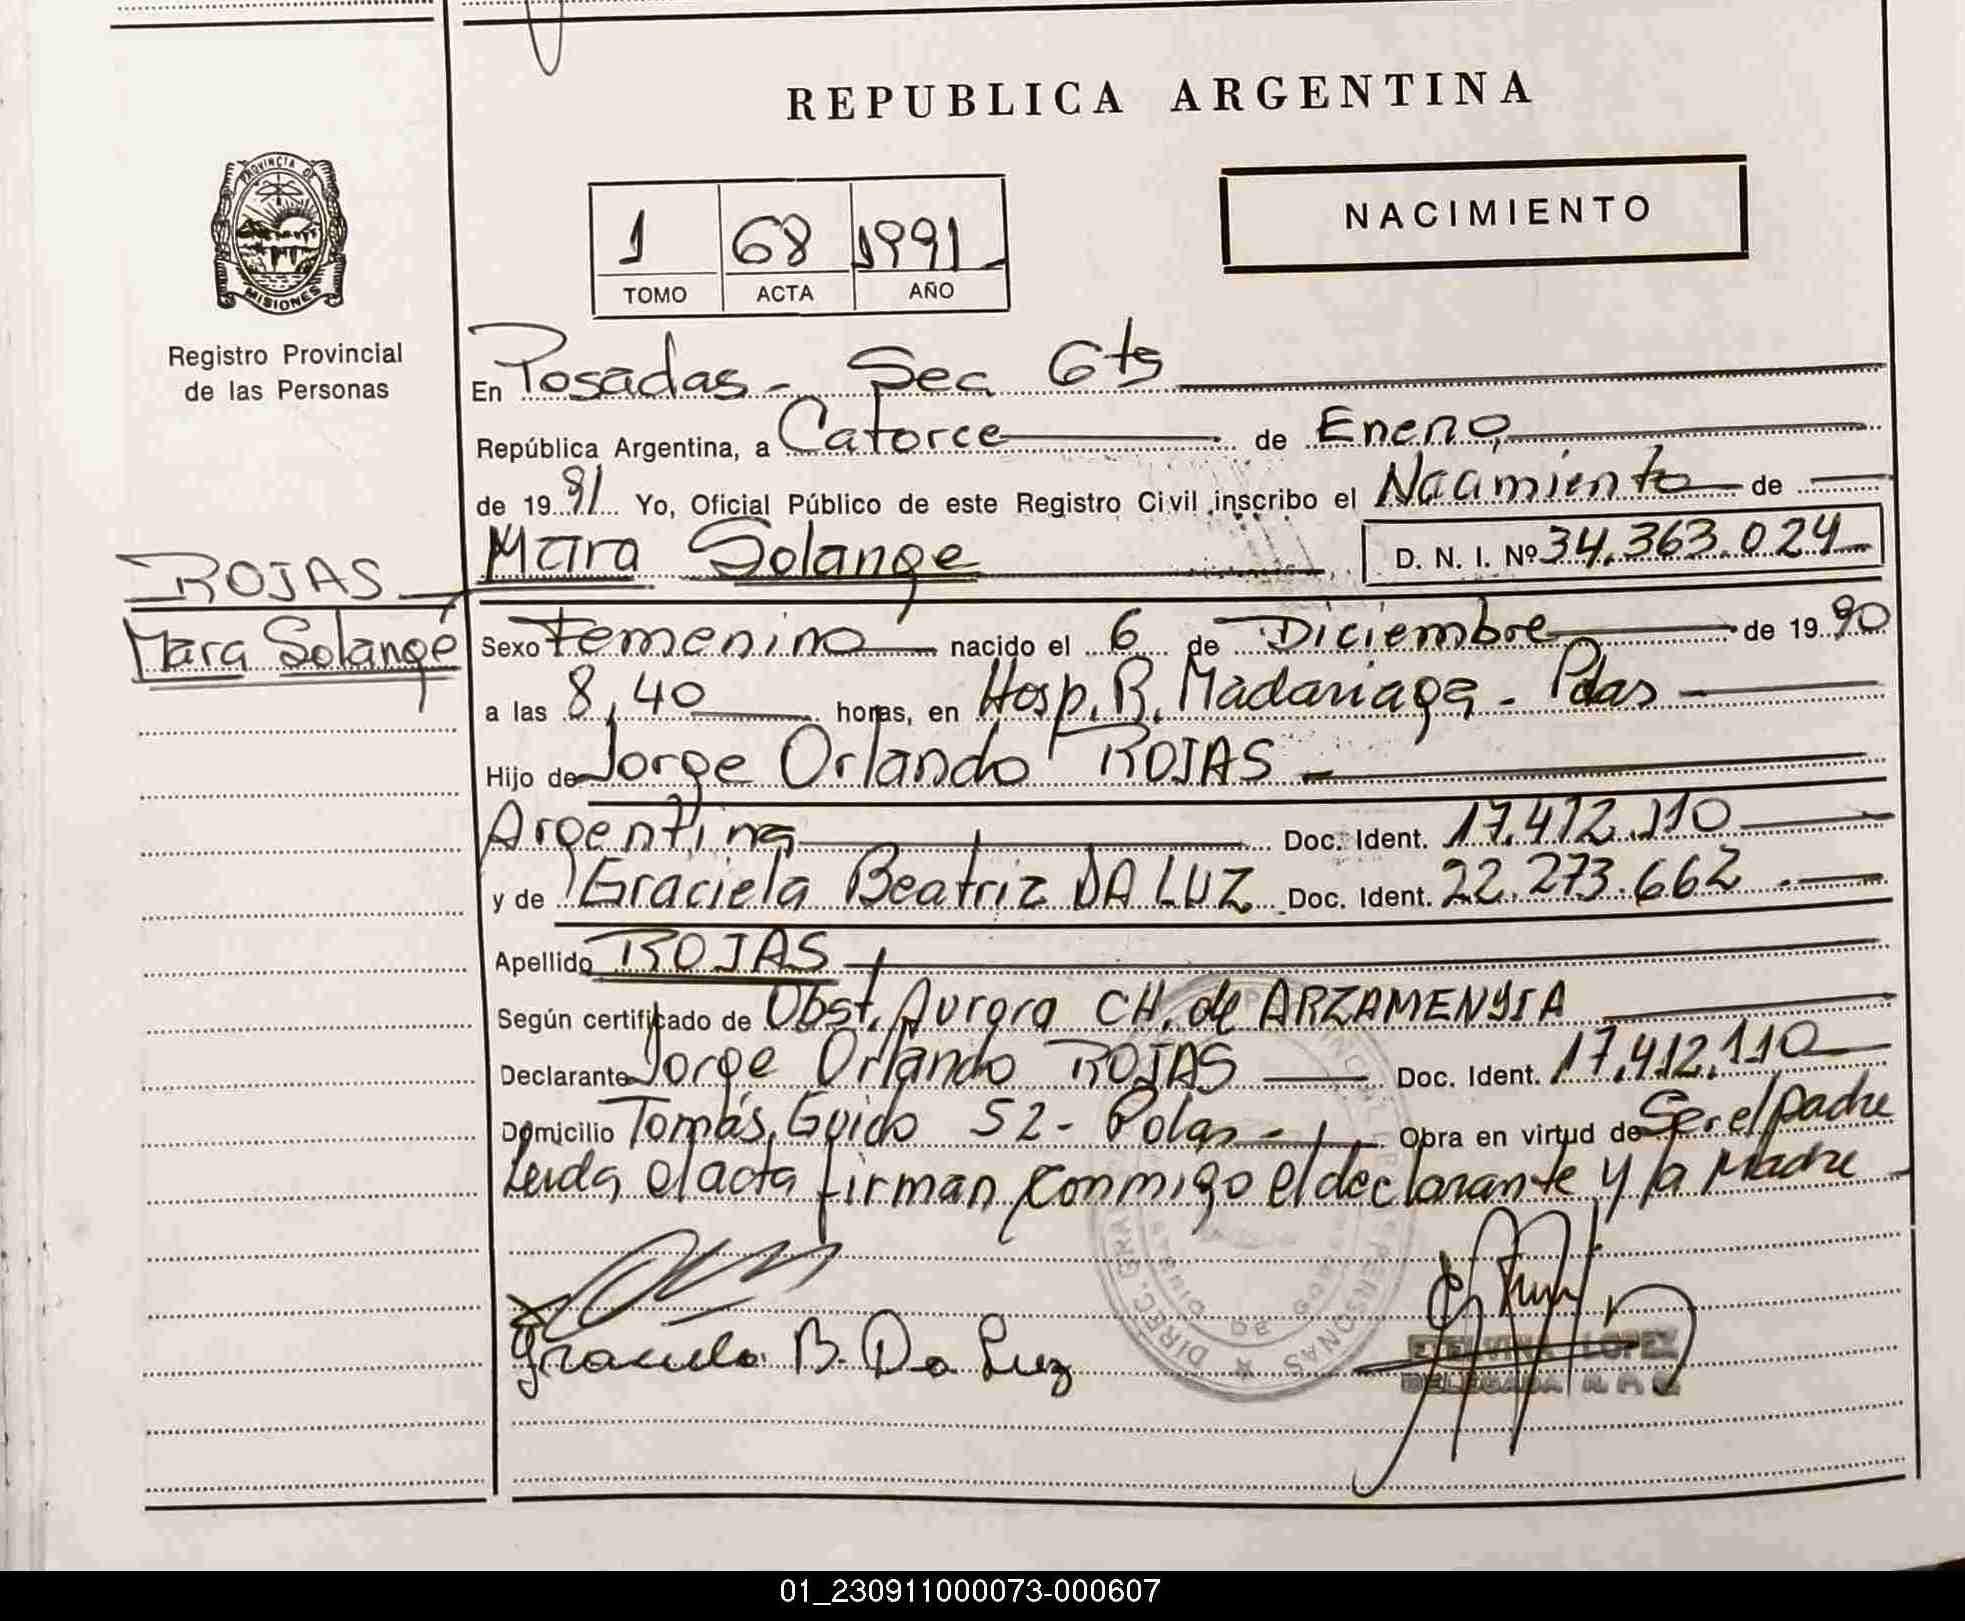 REPUBLICA ARGENTINA
PROVINCIA DE
MISIONES
Registro Provincial
de las Personas
NACIMIENTO
1 68 1991
TOMO ACTA AÑO
En Posadas - Sec 6ta
República Argentina, a Catorce de Enero
de 1991 Yo, Oficial Público de este Registro Civil inscribo el Nacimiento de
Mara Solange D. N. I. Nº 34.363.024
ROJAS
Mara Solange
Sexo Femenino nacido el 6 de Diciembre de 1990
a las 8,40 horas, en Hosp. R. Madariaga - Pdas
Hijo de Jorge Orlando ROJAS
Argentina Doc. Ident. 17.412.110
y de Graciela Beatriz DA LUZ Doc. Ident. 22.273.662
Apellido ROJAS
Según certificado de Obst. Aurora CH. de
Declarante Jorge Orlando ROJAS Doc. Ident. 17.412.110
Domicilio Tomás Guido 52 - Pdas - Obra en virtud de Ser el padre
Leida el acta firman conmigo el declarante y la Madre
Graciela B. Da Luz
ETELVINA LOPEZ
DELEGADA
01_230911000073-000607